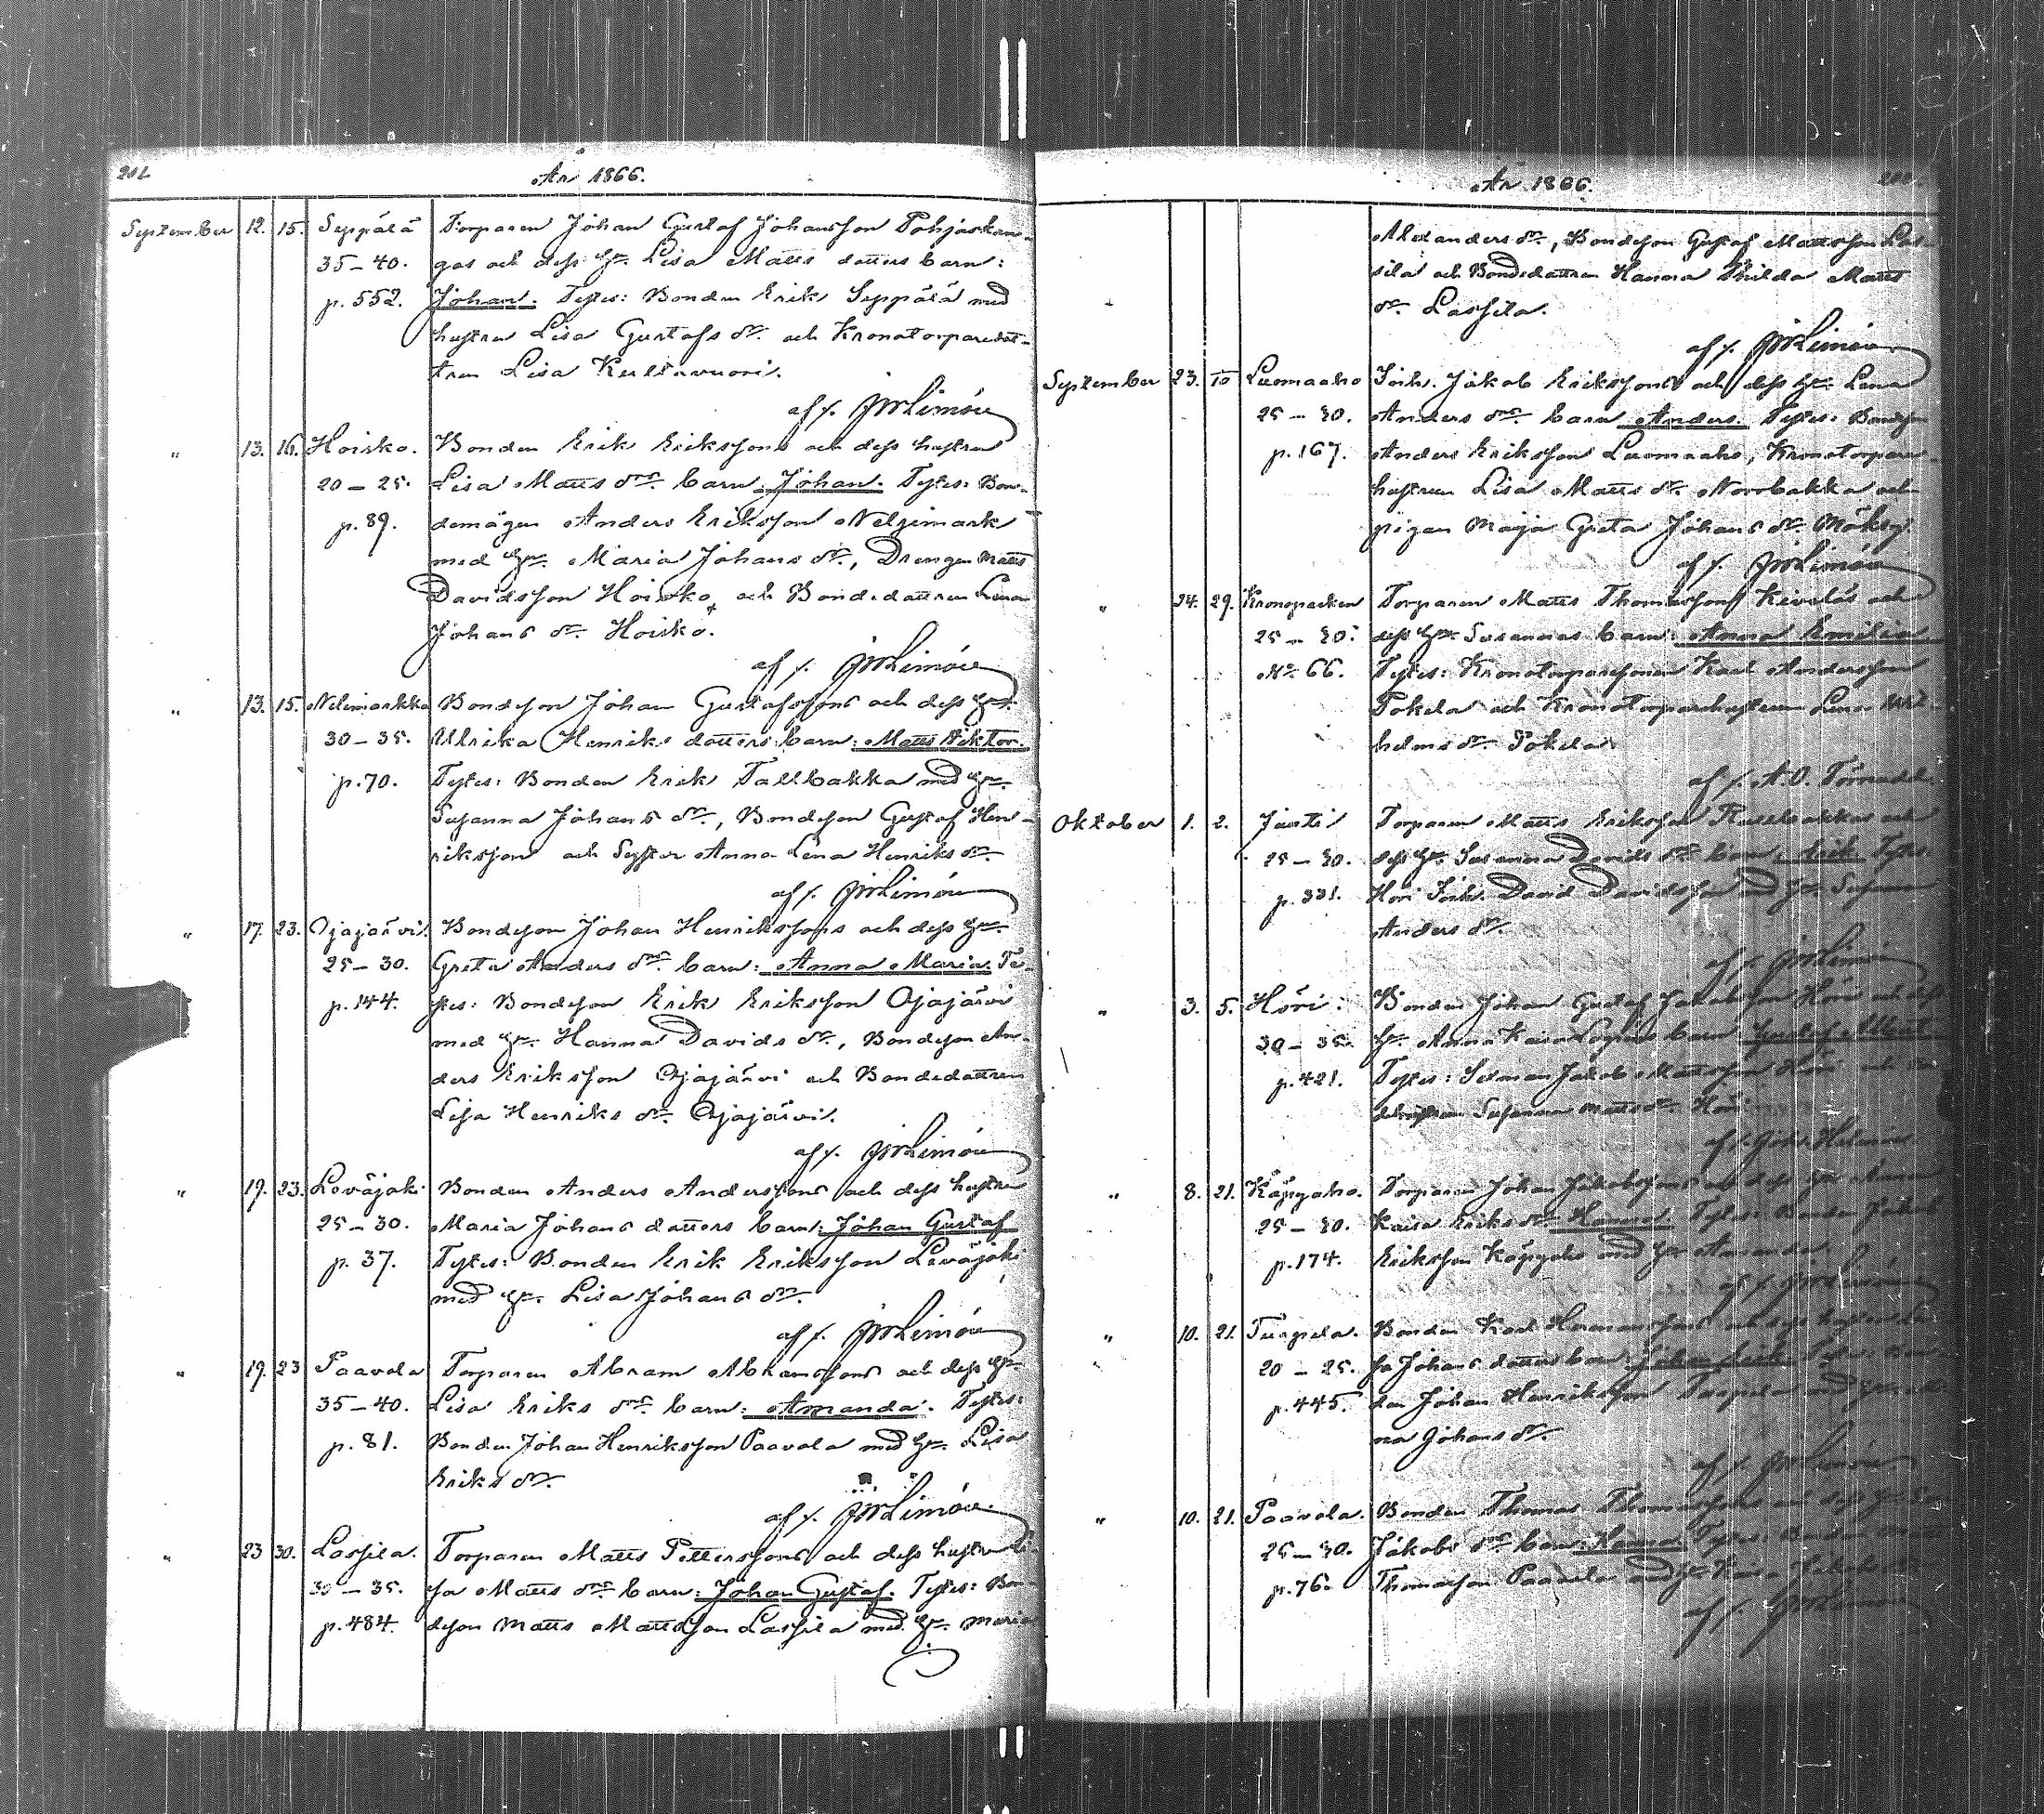 201.
År 1866.
September 12. 15. Seppälä Torparen Johan Gustaf Johansson Pohjaskan-
35–40. gas och dess h. Lisa Matts dotters barn:
p. 552. Johan. Testes: Bonden Erik Seppälä med
hustrun Lisa Gustafs dr. och Kronotorparedot-
tren Lisa Kultavuori.
af f.
" 13. 16. Hoisko. Bonden Erik Erikssons och dess hustrus
20–25. Lisa Matts drs. barn: Johan. Testes: Bon-
p. 89. demågen Anders Eriksson Nelzimark
med h. Maria Johans dr., Drengen Matts
Davidsson Hoisko, och Bondedattren Lena
Johans dr. Hoisko.
af f.
" 13. 15. Nelimarkka Bondeson Johan Gustafssons och dess h.
30–35. Ulrika Henriks dotters barn: Matts Viktor.
p. 70. Testes: Bonden Erik Tallbakka med h.
Susanna Johans dr., Bondeson Gustaf Hen-
riksson och Syster Anna Lena Henriks dr.
af f.
" 17. 23. Ojajärvi. Bondeson Johan Henrikssons och dess h.
25–30. Greta Anders drs. barn: Anna Maria. Te-
p. 144. stes: Bondeson Erik Eriksson Ojajärvi
med h. Hanna Davids dr., Bondeson An-
ders Eriksson Ojajärvi och Bondedattren
Lisa Henriks dr. Ojajärvi.
af f.
" 19. 23. Leväjoki Bonden Anders Anderssons och dess hustrus
25–30. Maria Johans dotters barn: Johan Gustaf
p. 37. Testes: Bonden Erik Eriksson Leväjoki
med h. Lisa Johans dr.
af f.
" 19. 23 Paavola Torparen Abram Abramssons och dess h.
35–40. Lisa Eriks drs. barn: Amanda. Testes:
p. 81. Bonden Johan Henriksson Paavola med h. Lisa
Eriks dr.
af f.
" 23 30. Lassila. Torparen Matts Petterssons och dess hustrus Li-
30–35. sa Matts drs. barn: Johan Gustaf. Testes: Bon-
p. 484. deson Matts Mattsson Lassila med h. Maria
År 1866.
Alexanders dr., Bondeson Gustaf Mattsson Las-
sila och Bondedattren Hanna Thilda Matts
dr. Lassila.
af f.
September 23. Luomaaho Inh. Jakob Erikssons och dess h. Lena
25–30. Anders drs. barn Anders. Testes: Bondeson
p. 167. Anders Eriksson Luomaaho, Kronotorpare-
hustrun Lisa Matts dr. Norrbakka och
pigan Maja Greta Johans dr. Möksy.
af f.
" 24. 29. Kronoparken Torparen Matts Thomasson Kiveläs och
25–30. dess h. Susannas barn: Anna Emilia
No. 66. Testes: Kronotorparesonen Karl Andersson
Pokela och Kronotorparehustrun Lena Wil-
helms dr. Pokela
af f. A.O. Törnudd.
Oktober 1. 2. Torparen Matts Eriksson och
25–30. dess h. Susanna Davids drs. barn: Erik. Testes
p. 331. Höri Inh. David Davidsson med h. Susanna
Anders dr.
af f.
" 3. 5. Höri. Bonden Johan Gustaf Jakobsson Höri och dess
30–35. h. Anna Kaisa barn: Gustaf
p. 421. Testes: Jakob Mattsson Höri och
Susanna Matts dr. Höri
af f.
" 8. 21. Käpyaho. Torparen Johan Jakobssons och dess h. Anna
25–30. Kaisa Eriks dr. Hanna. Testes: Bonden Jakob
p. 174. Eriksson Käpyaho med h. Amanda.
af f.
" 10. 21. Turpela. Bonden Karl Hermanssons och dess hustrus Li-
20–25. sa Johans dotters barn: Johan Erik. Testes: Bon-
p. 445. den Johan Henriksson Turpela med h.
na Johans dr.
af f.
" 10. 21. Paavola. Bonden Thomas Thomassons och dess h.
25–30. Jakobs drs. barn: Hanna Testes: Bonden
p. 76. Thomasson Paavola med h. Kaisa Jakobs
af f.